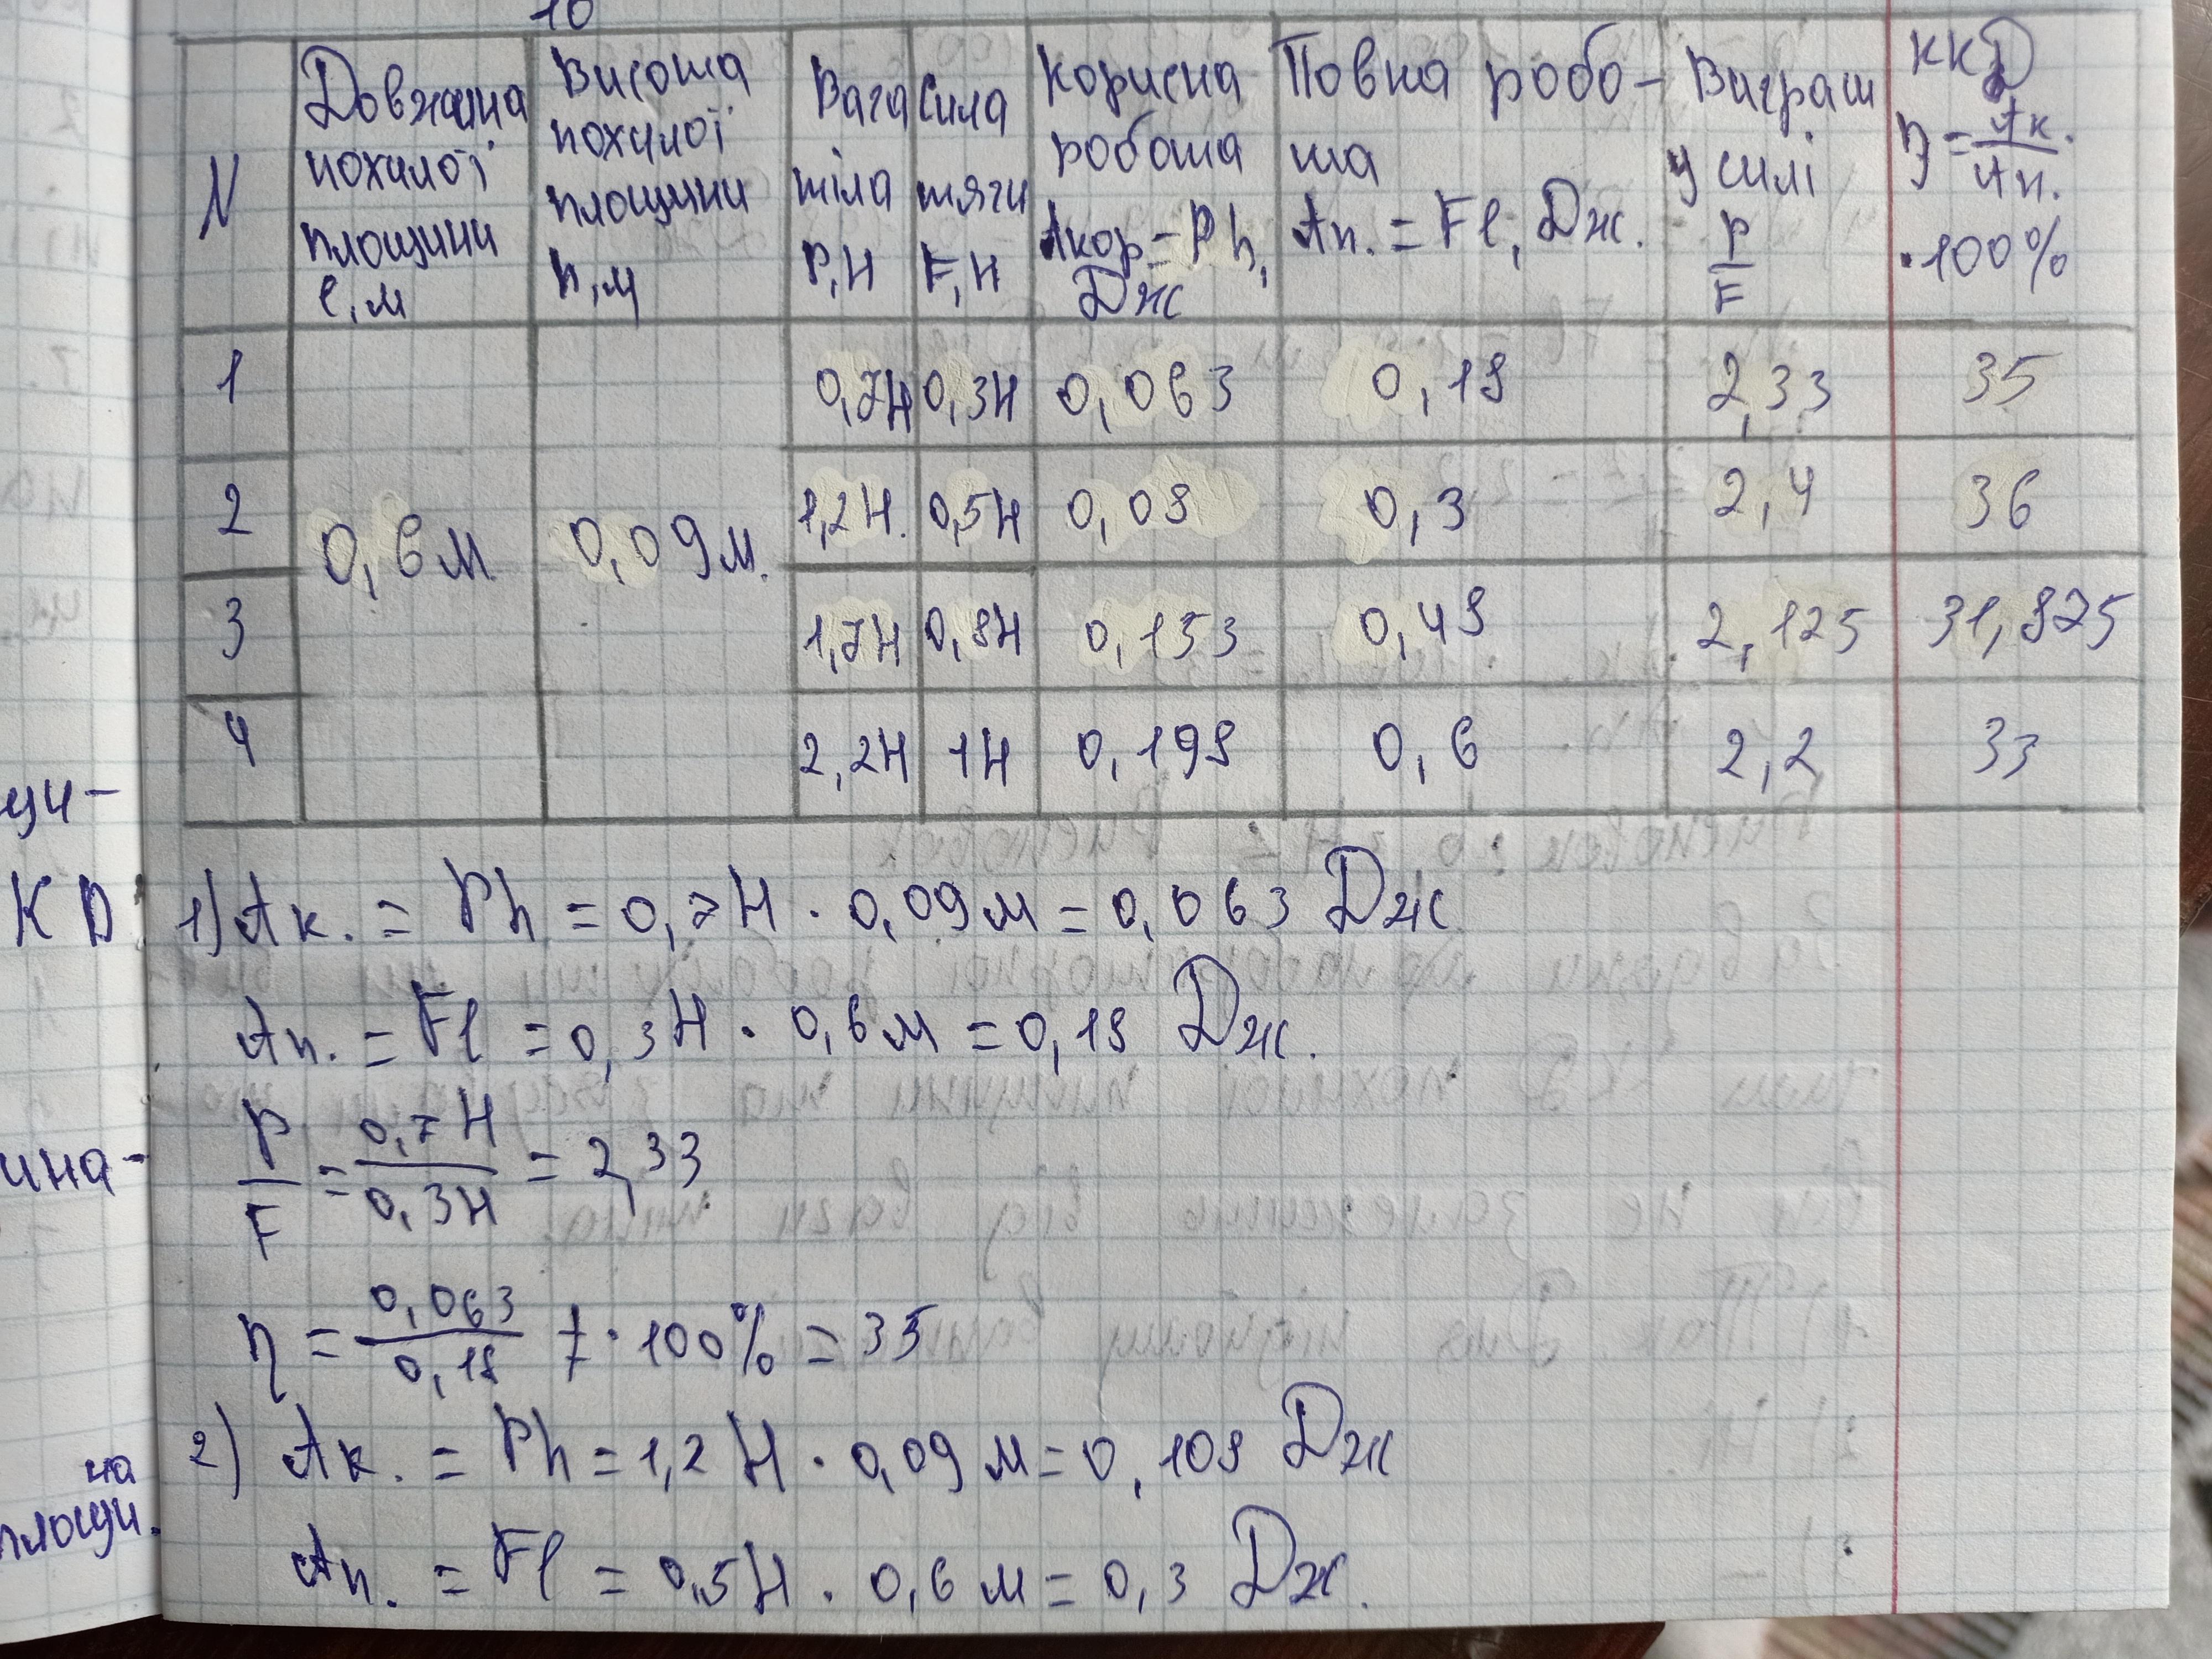 10
N
Довжина
похилої
площини
l, м
Висота
похилої
площини
h, м
Вага
тіла
P, Н
Сила
тяги
F, Н
Корисна
робота
Aкор = Ph,
Дж
Повна робо-
та
Aп. = Fl, Дж.
Виграш
у силі
P/F
ККД
η = Aк./Aп.
·100%
1
0,7Н
0,3Н
0,063
0,18
2,33
35
2
0,6 м
0,09 м.
1,2Н.
0,5Н
0,08
0,3
2,4
36
3
1,7Н
0,8Н
0,153
0,48
2,125
31,875
4
2,2Н
1Н
0,198
0,6
2,2
33
1) Aк. = Ph = 0,7Н · 0,09 м = 0,063 Дж
Aп. = Fl = 0,3Н · 0,6 м = 0,18 Дж.
P/F = 0,7Н/0,3Н = 2,33
η = 0,063/0,18 · 100% = 35
2) Aк. = Ph = 1,2 Н · 0,09 м = 0,108 Дж
Aп. = Fl = 0,5Н · 0,6 м = 0,3 Дж.
щи-
КД
ина-
на
площи.